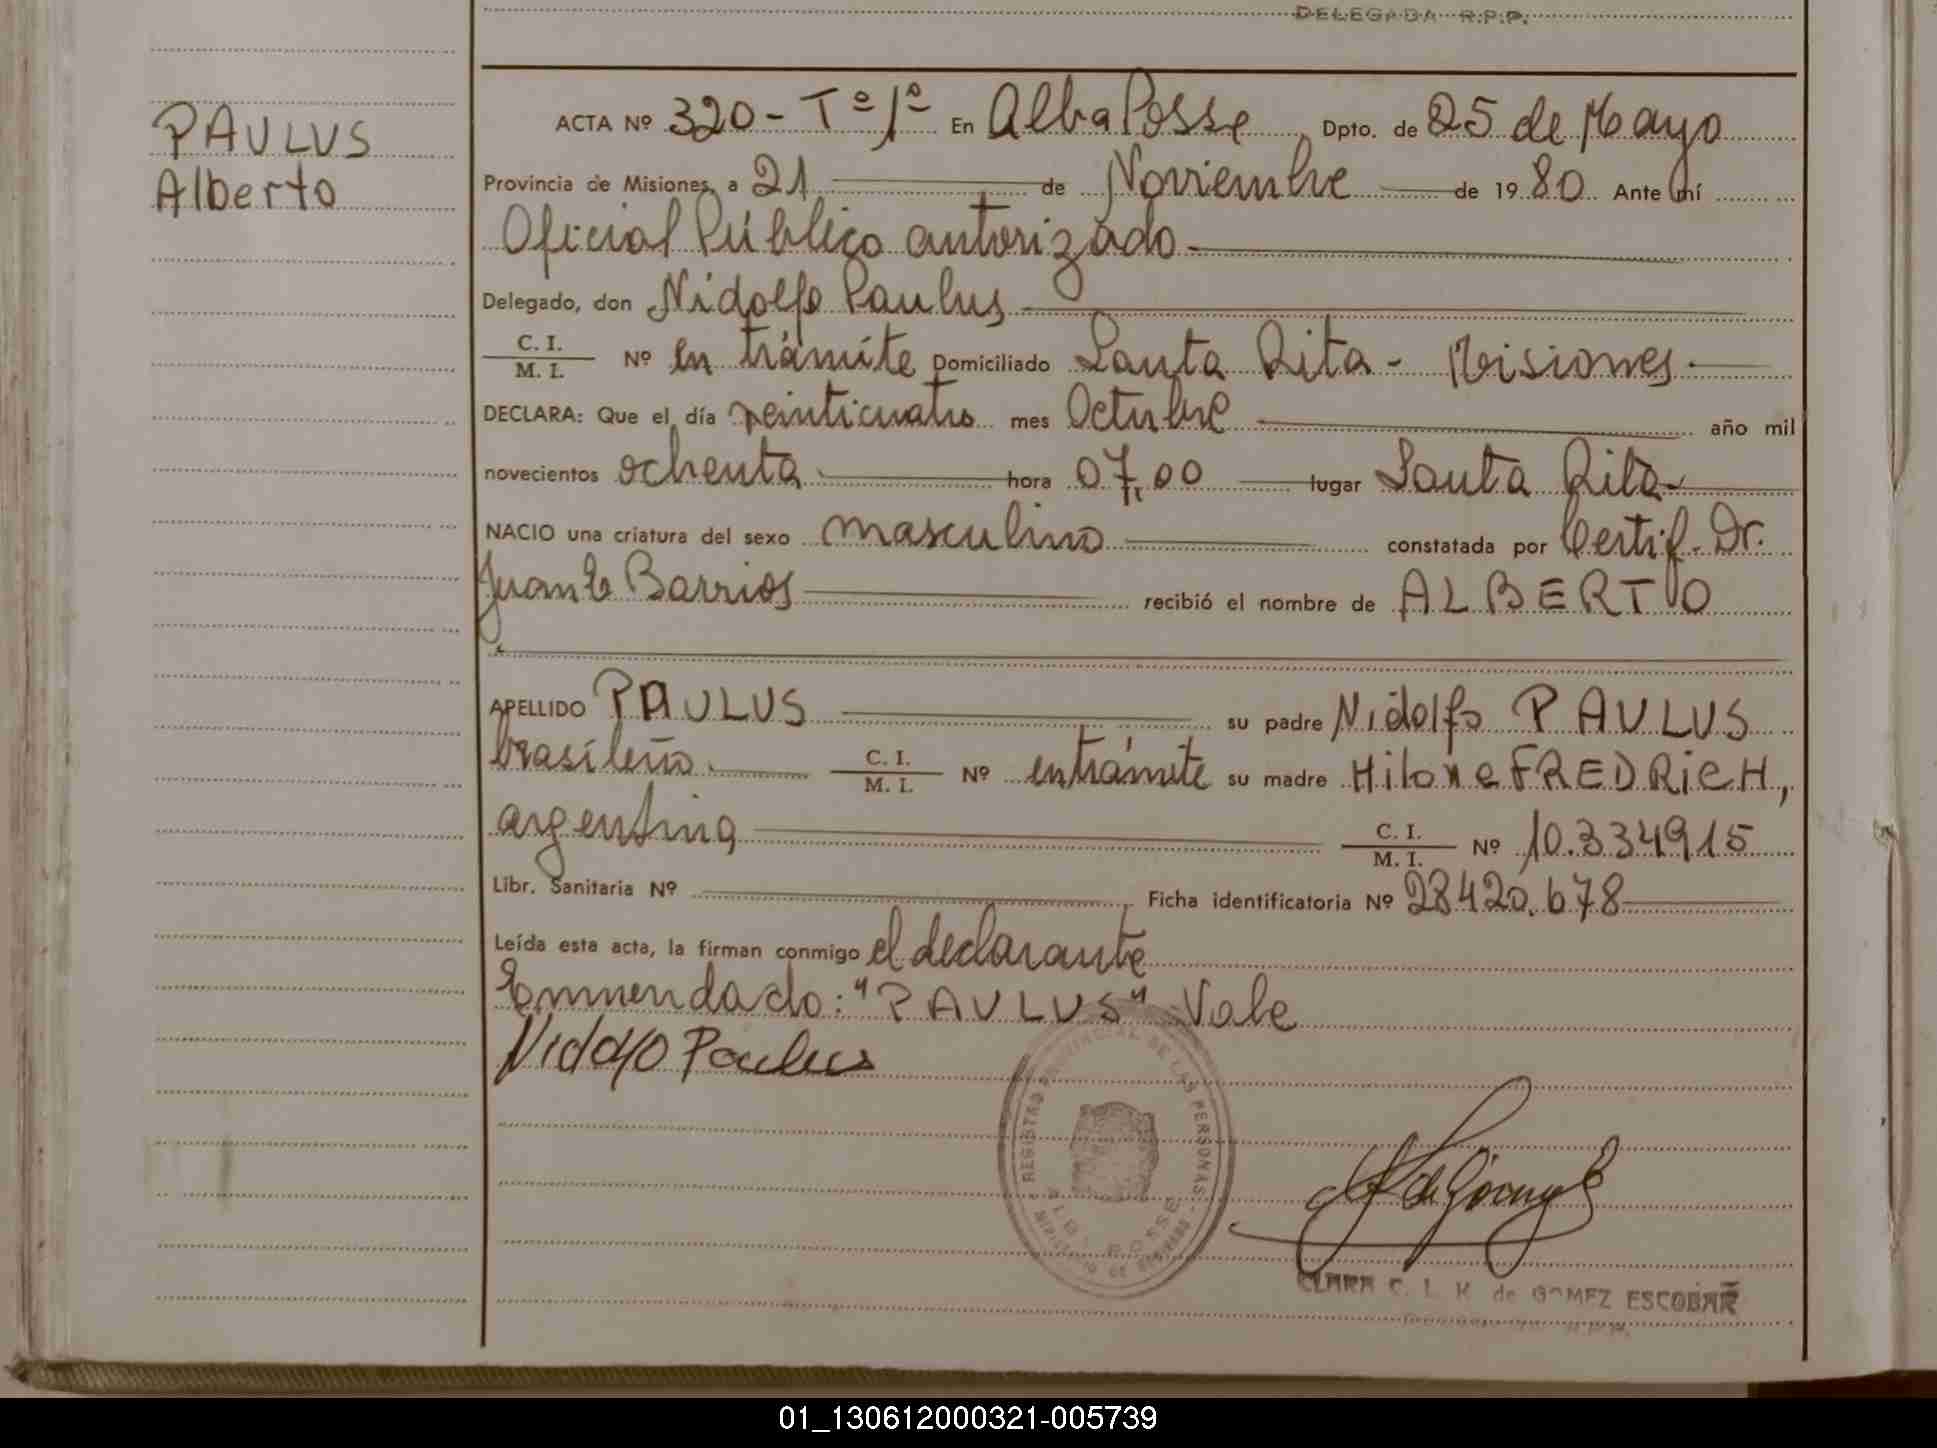 DELEGADA R.P.P.
PAULUS
Alberto
ACTA Nº 320 - Tº 1º En Alba Posse Dpto. de 25 de Mayo
Provincia de Misiones, a 21 de Noviembre de 1980 Ante mí
Oficial Público autorizado
Delegado, don Nidolfo Paulus
C. I.
M. I. Nº en trámite Domiciliado Santa Rita - Misiones
DECLARA: Que el día veinticuatro mes Octubre año mil
novecientos ochenta hora 07,00 lugar Santa Rita
NACIO una criatura del sexo masculino constatada por Certif. Dr.
Barrios recibió el nombre de ALBERTO
APELLIDO PAULUS su padre Nidolfo PAULUS
brasileño C. I.
M. I. Nº en trámite su madre FREDRICH,
argentina C. I.
M. I. Nº 10.334915
Libr. Sanitaria Nº Ficha identificatoria Nº 28420.678
Leída esta acta, la firman conmigo el declarante
Enmendado: "PAULUS" Vale
Nidolfo Paulus
REGISTRO PROVINCIAL DE LAS PERSONAS
ALBA POSSE
MINISTERIO DE GOBIERNO
CLARA C. L. K. de GOMEZ ESCOBAR
01_130612000321-005739